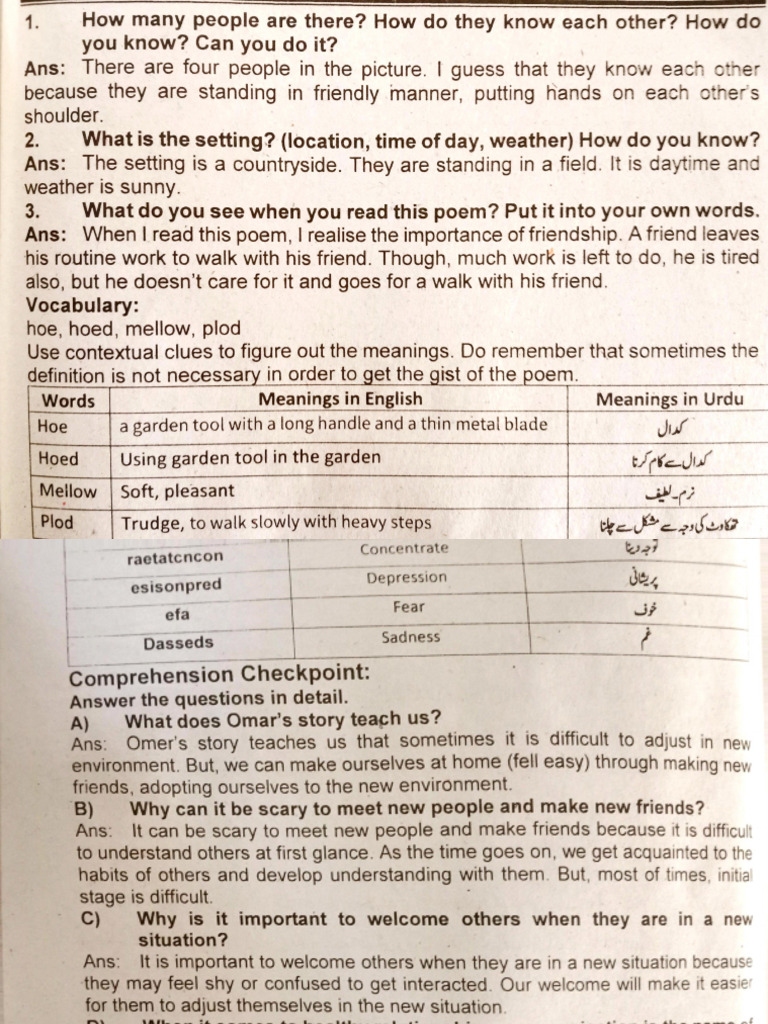 1. How many people are there? How do they know each other? How do
you know? Can you do it?
Ans: There are four people in the picture. I guess that they know each other
because they are standing in friendly manner, putting hands on each other's
shoulder.
2. What is the setting? (location, time of day, weather) How do you know?
Ans: The setting is a countryside. They are standing in a field. It is daytime and
weather is sunny.
3. What do you see when you read this poem? Put it into your own words.
Ans: When I read this poem, I realise the importance of friendship. A friend leaves
his routine work to walk with his friend. Though, much work is left to do, he is tired
also, but he doesn't care for it and goes for a walk with his friend.
Vocabulary:
hoe, hoed, mellow, plod
Use contextual clues to figure out the meanings. Do remember that sometimes the
definition is not necessary in order to get the gist of the poem.
Words Meanings in English Meanings in Urdu
Hoe a garden tool with a long handle and a thin metal blade کدال
Hoed Using garden tool in the garden کدال سے کام کرنا
Mellow Soft, pleasant نرم۔لطیف
Plod Trudge, to walk slowly with heavy steps تھکاوٹ کی وجہ سے مشکل سے چلنا
raetatcncon Concentrate توجہ دینا
esisonpred Depression پریشانی
efa Fear خوف
Dasseds Sadness غم
Comprehension Checkpoint:
Answer the questions in detail.
A) What does Omar's story teach us?
Ans: Omer's story teaches us that sometimes it is difficult to adjust in new
environment. But, we can make ourselves at home (fell easy) through making new
friends, adopting ourselves to the new environment.
B) Why can it be scary to meet new people and make new friends?
Ans: It can be scary to meet new people and make friends because it is difficult
to understand others at first glance. As the time goes on, we get acquainted to the
habits of others and develop understanding with them. But, most of times, initial
stage is difficult.
C) Why is it important to welcome others when they are in a new
situation?
Ans: It is important to welcome others when they are in a new situation because
they may feel shy or confused to get interacted. Our welcome will make it easier
for them to adjust themselves in the new situation.